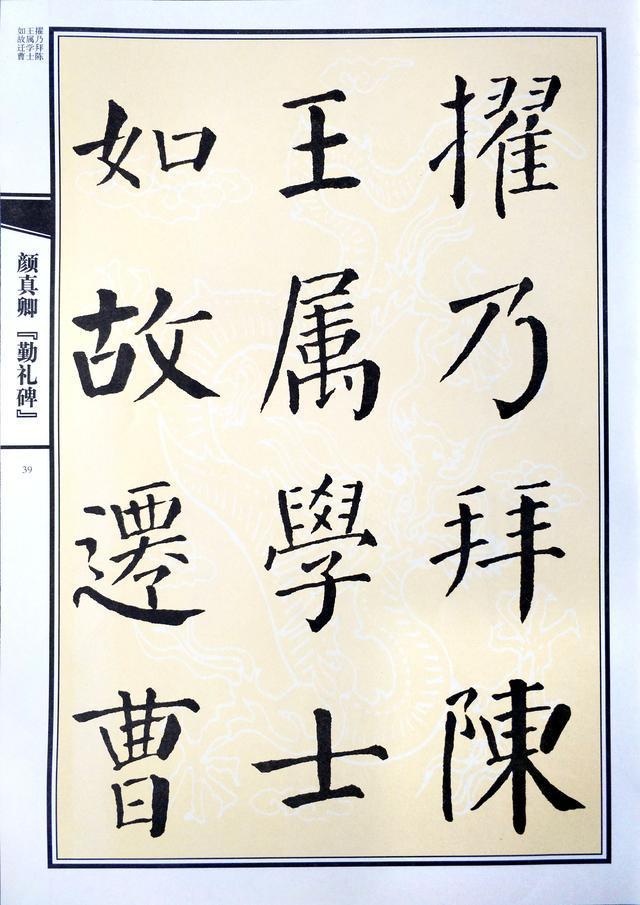 擢乃拜陳
王属學士
如故遷曹
擢乃拜陈
王属学士
如故迁曹
颜真卿『勤礼碑』
39